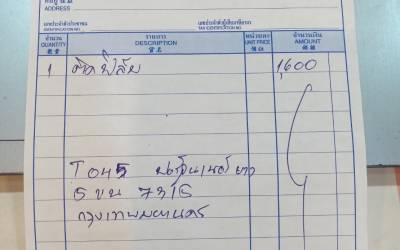 ADDRESS
เลขประจำตัวประชาชน
IDENTIFICATION NO.
เลขประจำตัวผู้เสียภาษีอากร
TAX IDENTIFICATION NO.
จำนวน รายการ หน่วยละ จำนวนเงิน
QUANTITY DESCRIPTION UNIT PRICE AMOUNT
1 ติดฟิล์ม 1,600
5 ขน 7315
กรุงเทพมหานคร